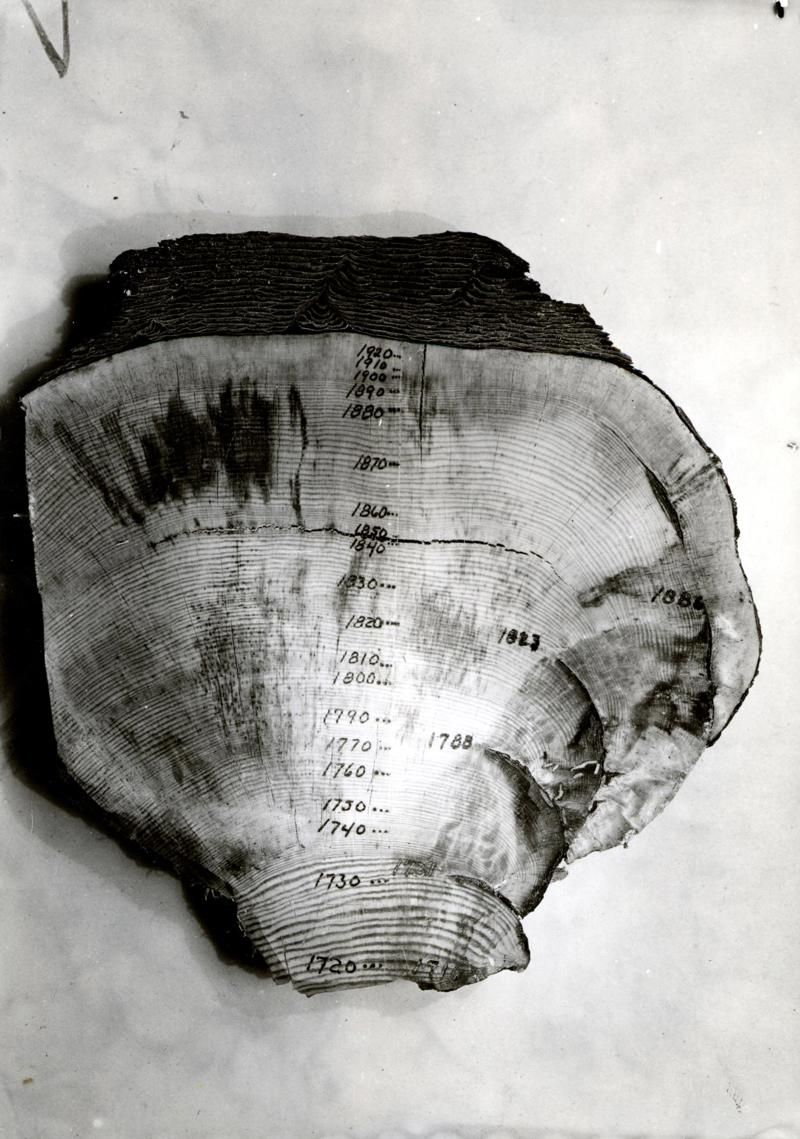 1920
1910
1900
1890
1880
1870
1860
1850
1840
1886
1830
1820
1823
1810
1800
1790
1770
1788
1760
1750
1740
1730
1720